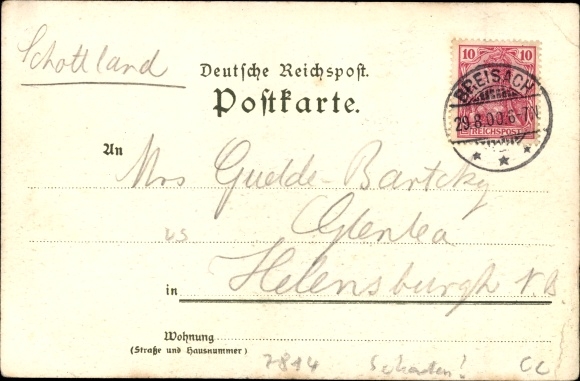 Schottland
10
REICHSPOST
BREISACH
29.8.00.6-7N.
Deutsche Reichspost.
Postkarte.
An
Mrs Guelde-Bartcky
Glenlea
in Helensburgh N.B.
Wohnung
(Straße und Hausnummer)
7814 CC